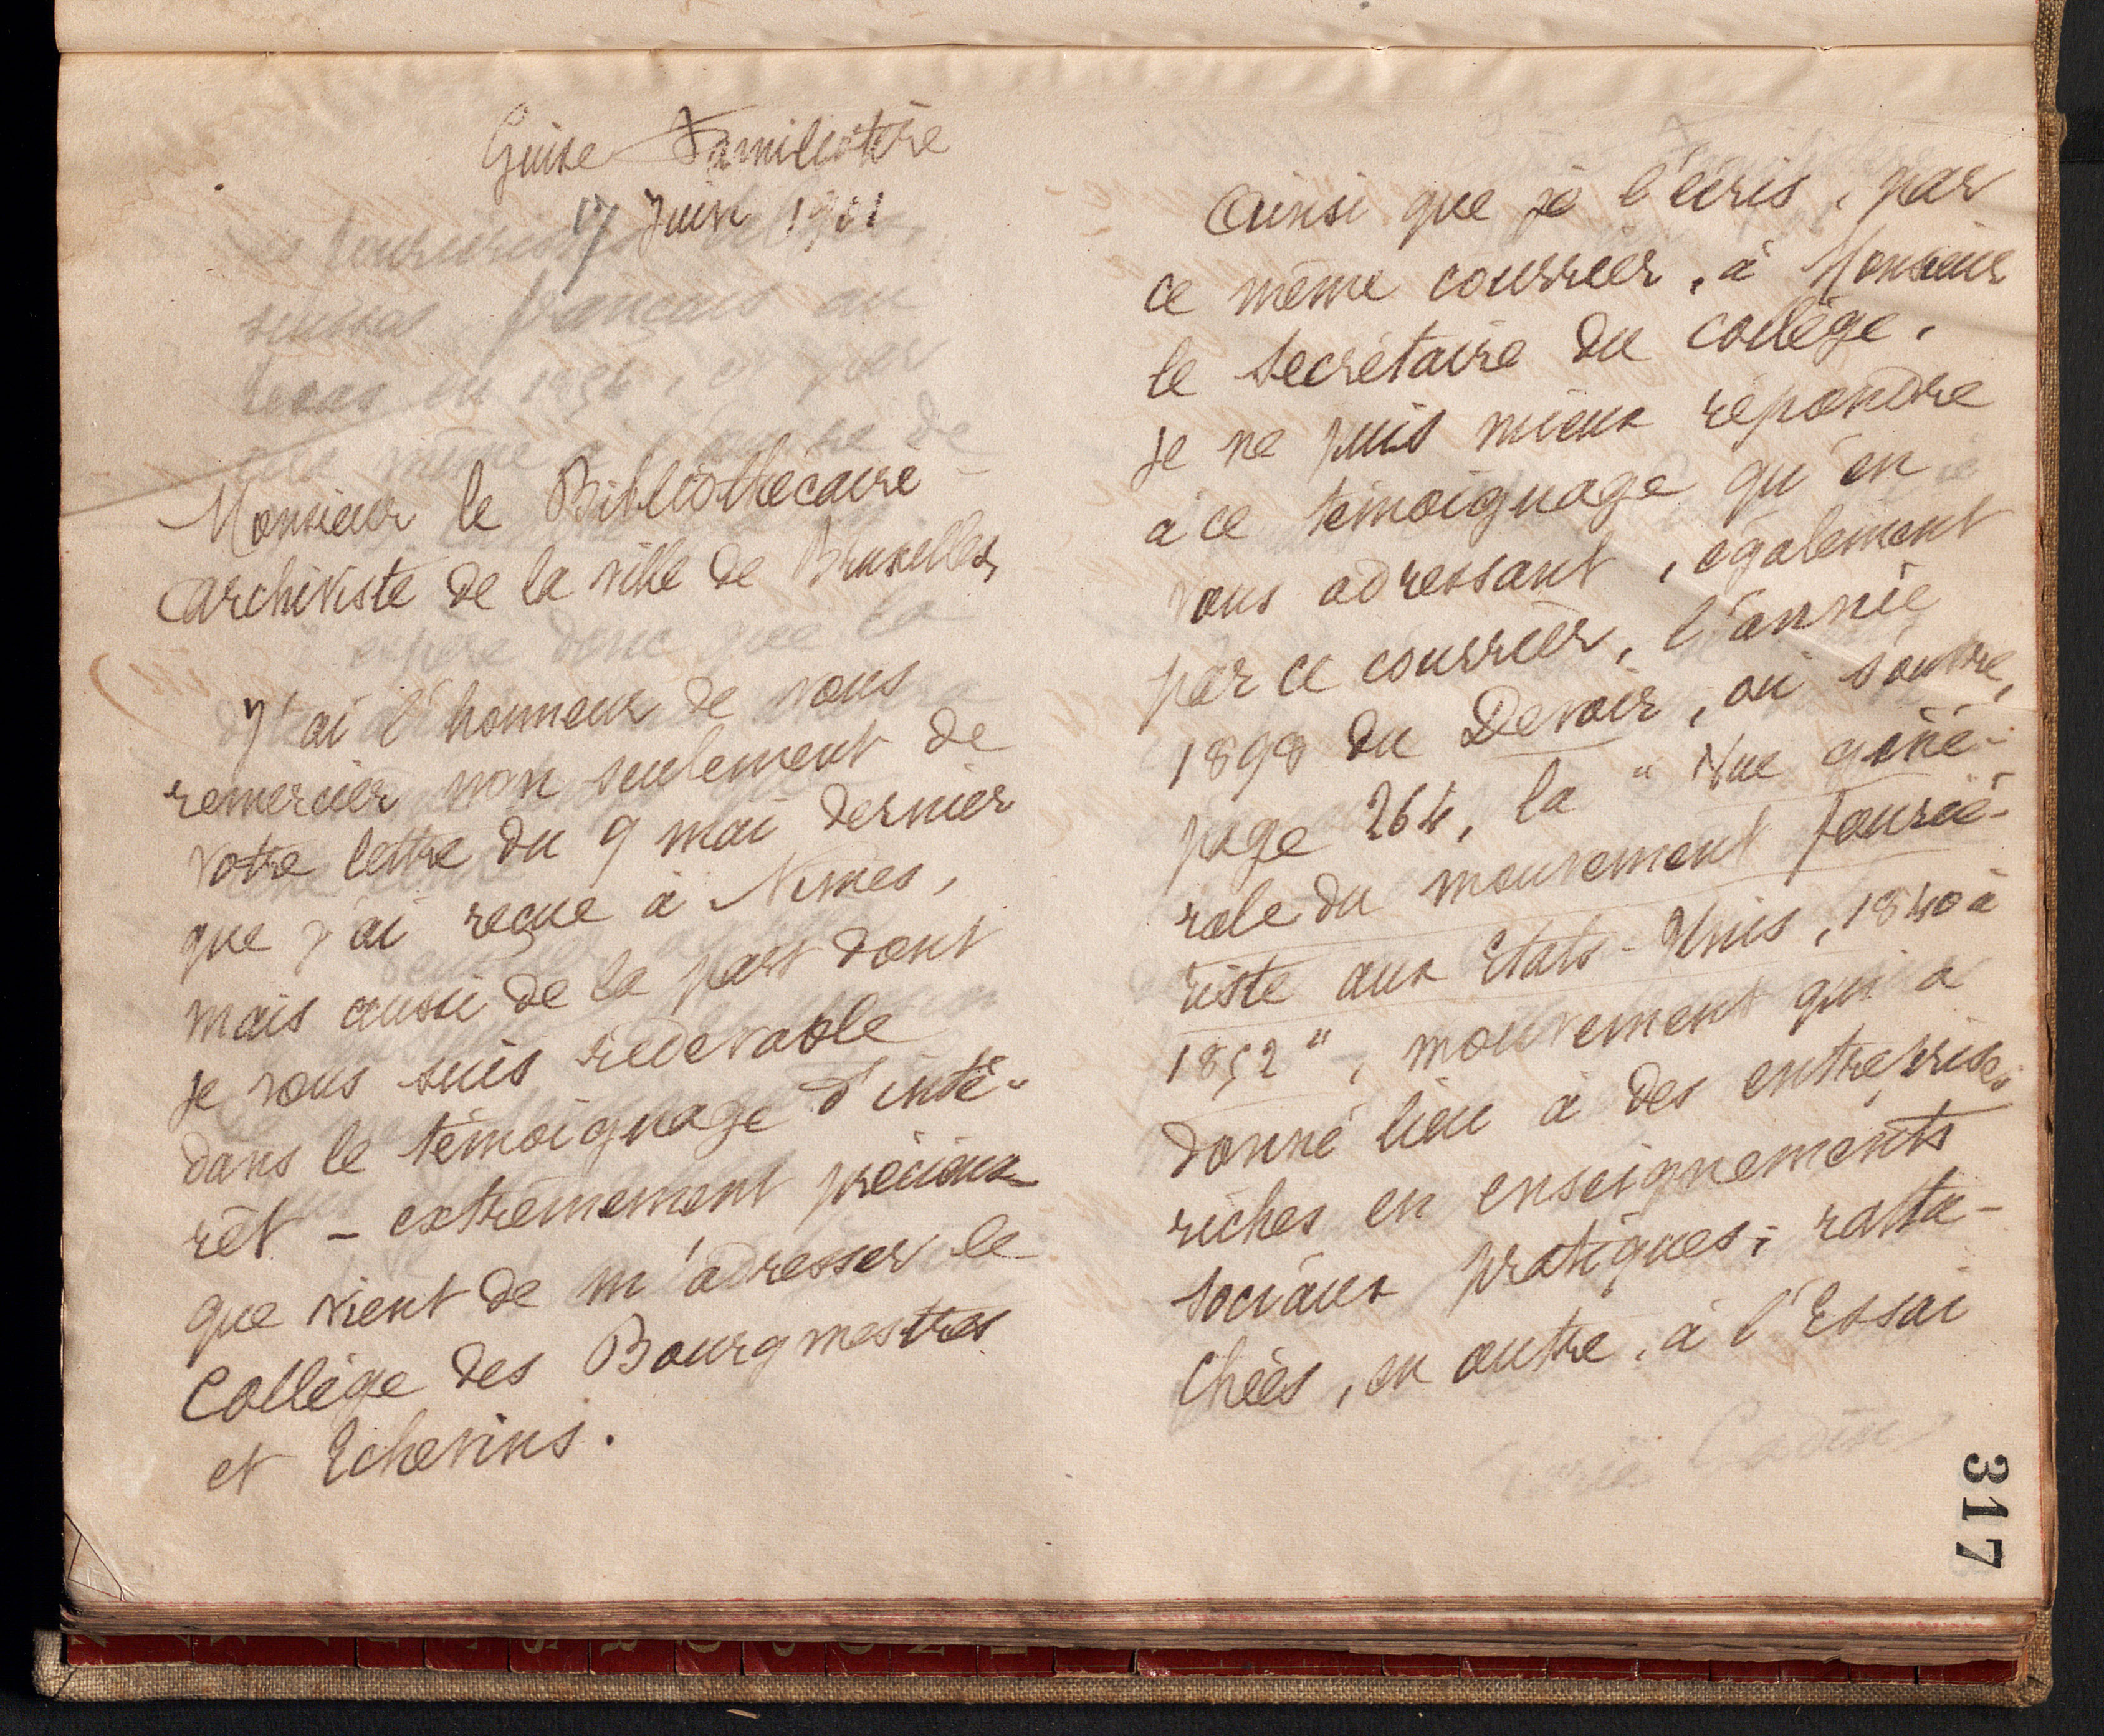 Guise Familistère
17 Juin 1901
Monsieur le Bibliothécaire
archiviste de la ville de Bruxelles,
J'ai l'honneur de vous
remercier non seulement de
votre lettre du 9 mai dernier
que j'ai reçue à Nîmes,
mais aussi de la part dont
je vous suis redevable
dans le témoignage d'inté-
rêt - extrêmement précieux
que vient de m'adresser le
Collège des Bourgmestres
et Echevins.
Ainsi que je l'écris, par
ce même courrier, à Monsieur
le Secrétaire du Collège,
je ne puis mieux répondre
à ce témoignage qu'en
vous adressant, également
par ce courrier, l'année
1898 du Devoir, où s'ouvre,
page 264, la "Vue géné-
rale du mouvement fourié-
riste aux Etats-Unis, 1840 à
1852", mouvement qui a
donné lieu à des entreprises
riches en enseignements
sociaux pratiques; ratta-
chées, en outre, à l'Essai
317